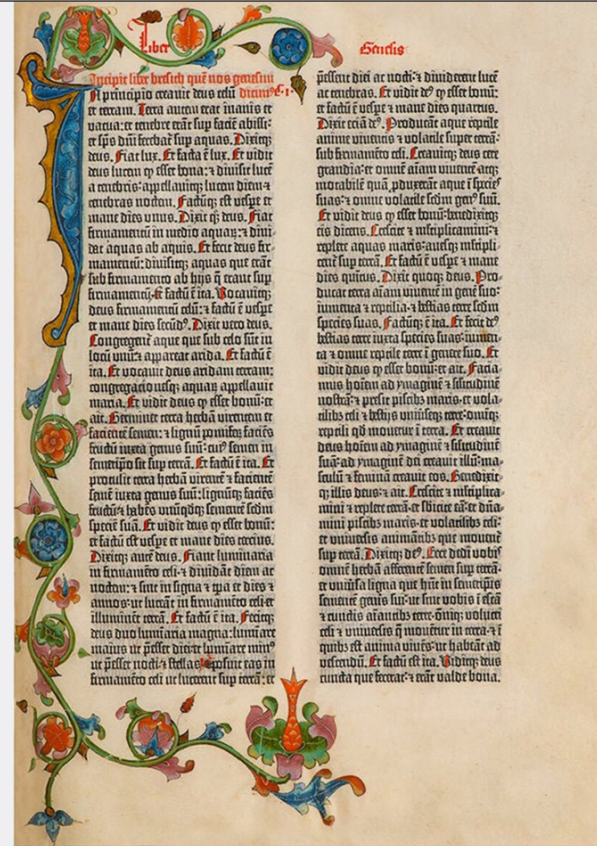 Liber Genesis
Incipit liber bresich quē nos genesim
dicim⁹ C·I·
In principio creavit deus celū
et terram. Terra autem erat inanis et
vacua: et tenebre erāt sup faciē abissi:
et sp̄s dn̄i ferebat̄ sup aquas. Dixitq;
deus. Fiat lux. Et facta ē lux. Et vidit
deus lucem ꝙ esset bona: ⁊ divisit lucē
a tenebris· appellavitq; lucem diem ⁊
tenebras noctem. Factūq; est vespe et
mane dies unus. Dixit qꝫ deus. Fiat
firmamentū in medio aquaꝝ: ⁊ divi-
dat aquas ab aquis. Et fecit deus fir-
mamentū: divisitq; aquas que erāt
sub firmamento ab hijs q̄ erant sup
firmamentū: et factū ē ita. Vocavitq;
deus firmamentū celū: ⁊ factū ē vespe
et mane dies secūd⁹. Dixit vero deus.
Congregent̄ aque que sub celo sūt in
locū unū ⁊ appareat arida. Et factū ē
ita. Et vocavit deus aridam terram:
congregacionesq; aquaꝝ appellavit
maria. Et vidit deus ꝙ esset bonū· et
ait. Germinet terra herbā virentem et
facientē semen: ⁊ lignū pomifeꝝ faciēs
fructū iuxta genus suū· cui⁹ semen in
semetipso sit sup terrā. Et factū ē ita. Et
protulit terra herbā virentē ⁊ facientē
semē iuxta genus suū: lignūq; faciēs
fructū ⁊ habēs unūqdq; sementē scdm
speciē suā. Et vidit deus ꝙ esset bonū:
et factū est vespe et mane dies tercius.
Dixitq; autē deus. Fiant luminaria
in firmamēto celi· ⁊ dividāt diem ac
noctem: ⁊ sint in signa ⁊ tp̄a et dies ⁊
annos· ut luceāt in firmamēto celi et
illuminēt terrā. Et factū ē ita. Fecitq;
deus duo luminaria magna: luminare
maius ut p̄esset diei· et luminare min⁹
ut p̄esset nocti: ⁊ stellas· ⁊ posuit eas in
firmamēto celi ut lucerent sup terrā: et
p̄essent diei ac nocti· ⁊ dividerent lucē
ac tenebras. Et vidit de⁹ ꝙ esset bonū:
et factū ē vespe ⁊ mane dies quartus.
Dixit eciā de⁹. Producāt aque reptile
anime viventis ⁊ volatile super terrā:
sub firmamēto celi. Creavitq; deus cete
grandia· et omnē aīam viventē atq;
motabilē quā pduxerāt aque ī species
suas: ⁊ omne volatile scdm gen⁹ suū.
Et vidit deus ꝙ esset bonū· benedixitq;
eis dicens. Crescite ⁊ mltiplicamini· ⁊
replete aquas maris· avesq; mltipli-
cent̄ sup terrā. Et factū ē vespe ⁊ mane
dies quintus. Dixit quoq; deus. Pro-
ducat terra aīam viventē in gene̅ suo:
iumenta ⁊ reptilia· ⁊ bestias terre scdm
species suas. Factūq; ē ita. Et fecit de⁹
bestias terre iuxta species suas: iumen-
ta ⁊ omne reptile terre ī genere suo. Et
vidit deus ꝙ esset bonū· et ait. Facia-
mus hoīem ad ymaginē ⁊ similitudinē
nostrā· ⁊ p̄sit piscib⁹ maris· et vola-
tilib⁹ celi ⁊ bestijs universeq; terre· omniq;
reptili qd̄ movetur ī terra. Et creavit
deus hoīem ad ymaginē ⁊ similitudinē
suā· ad ymaginē dei creavit illū· ma-
sculū ⁊ feminā creavit eos. Benedixit-
q; illis deus· ⁊ ait. Crescite ⁊ mltiplica-
mini ⁊ replete terrā· et sbicite eā· et dn̄a-
mini piscib⁹ maris· et volatilib⁹ celi·
et universis animātib⁹ que moventur
sup terrā. Dixitq; de⁹. Ecce dedi vobis
omnē herbā afferentē semen sup terrā·
et univ̄sa ligna que hn̄t in semetipis
sementē gen̄is sui· ut sint vobis ī escā
⁊ cunctis aīantib⁹ terre· omiq; volucri
celi ⁊ universis q̄ moventur in terra· ⁊ ī
quib⁹ est anima vivēs· ut habeāt ad
vescendū. Et factū est ita. Viditq; deus
cuncta que fecerat· ⁊ erāt valde bona.